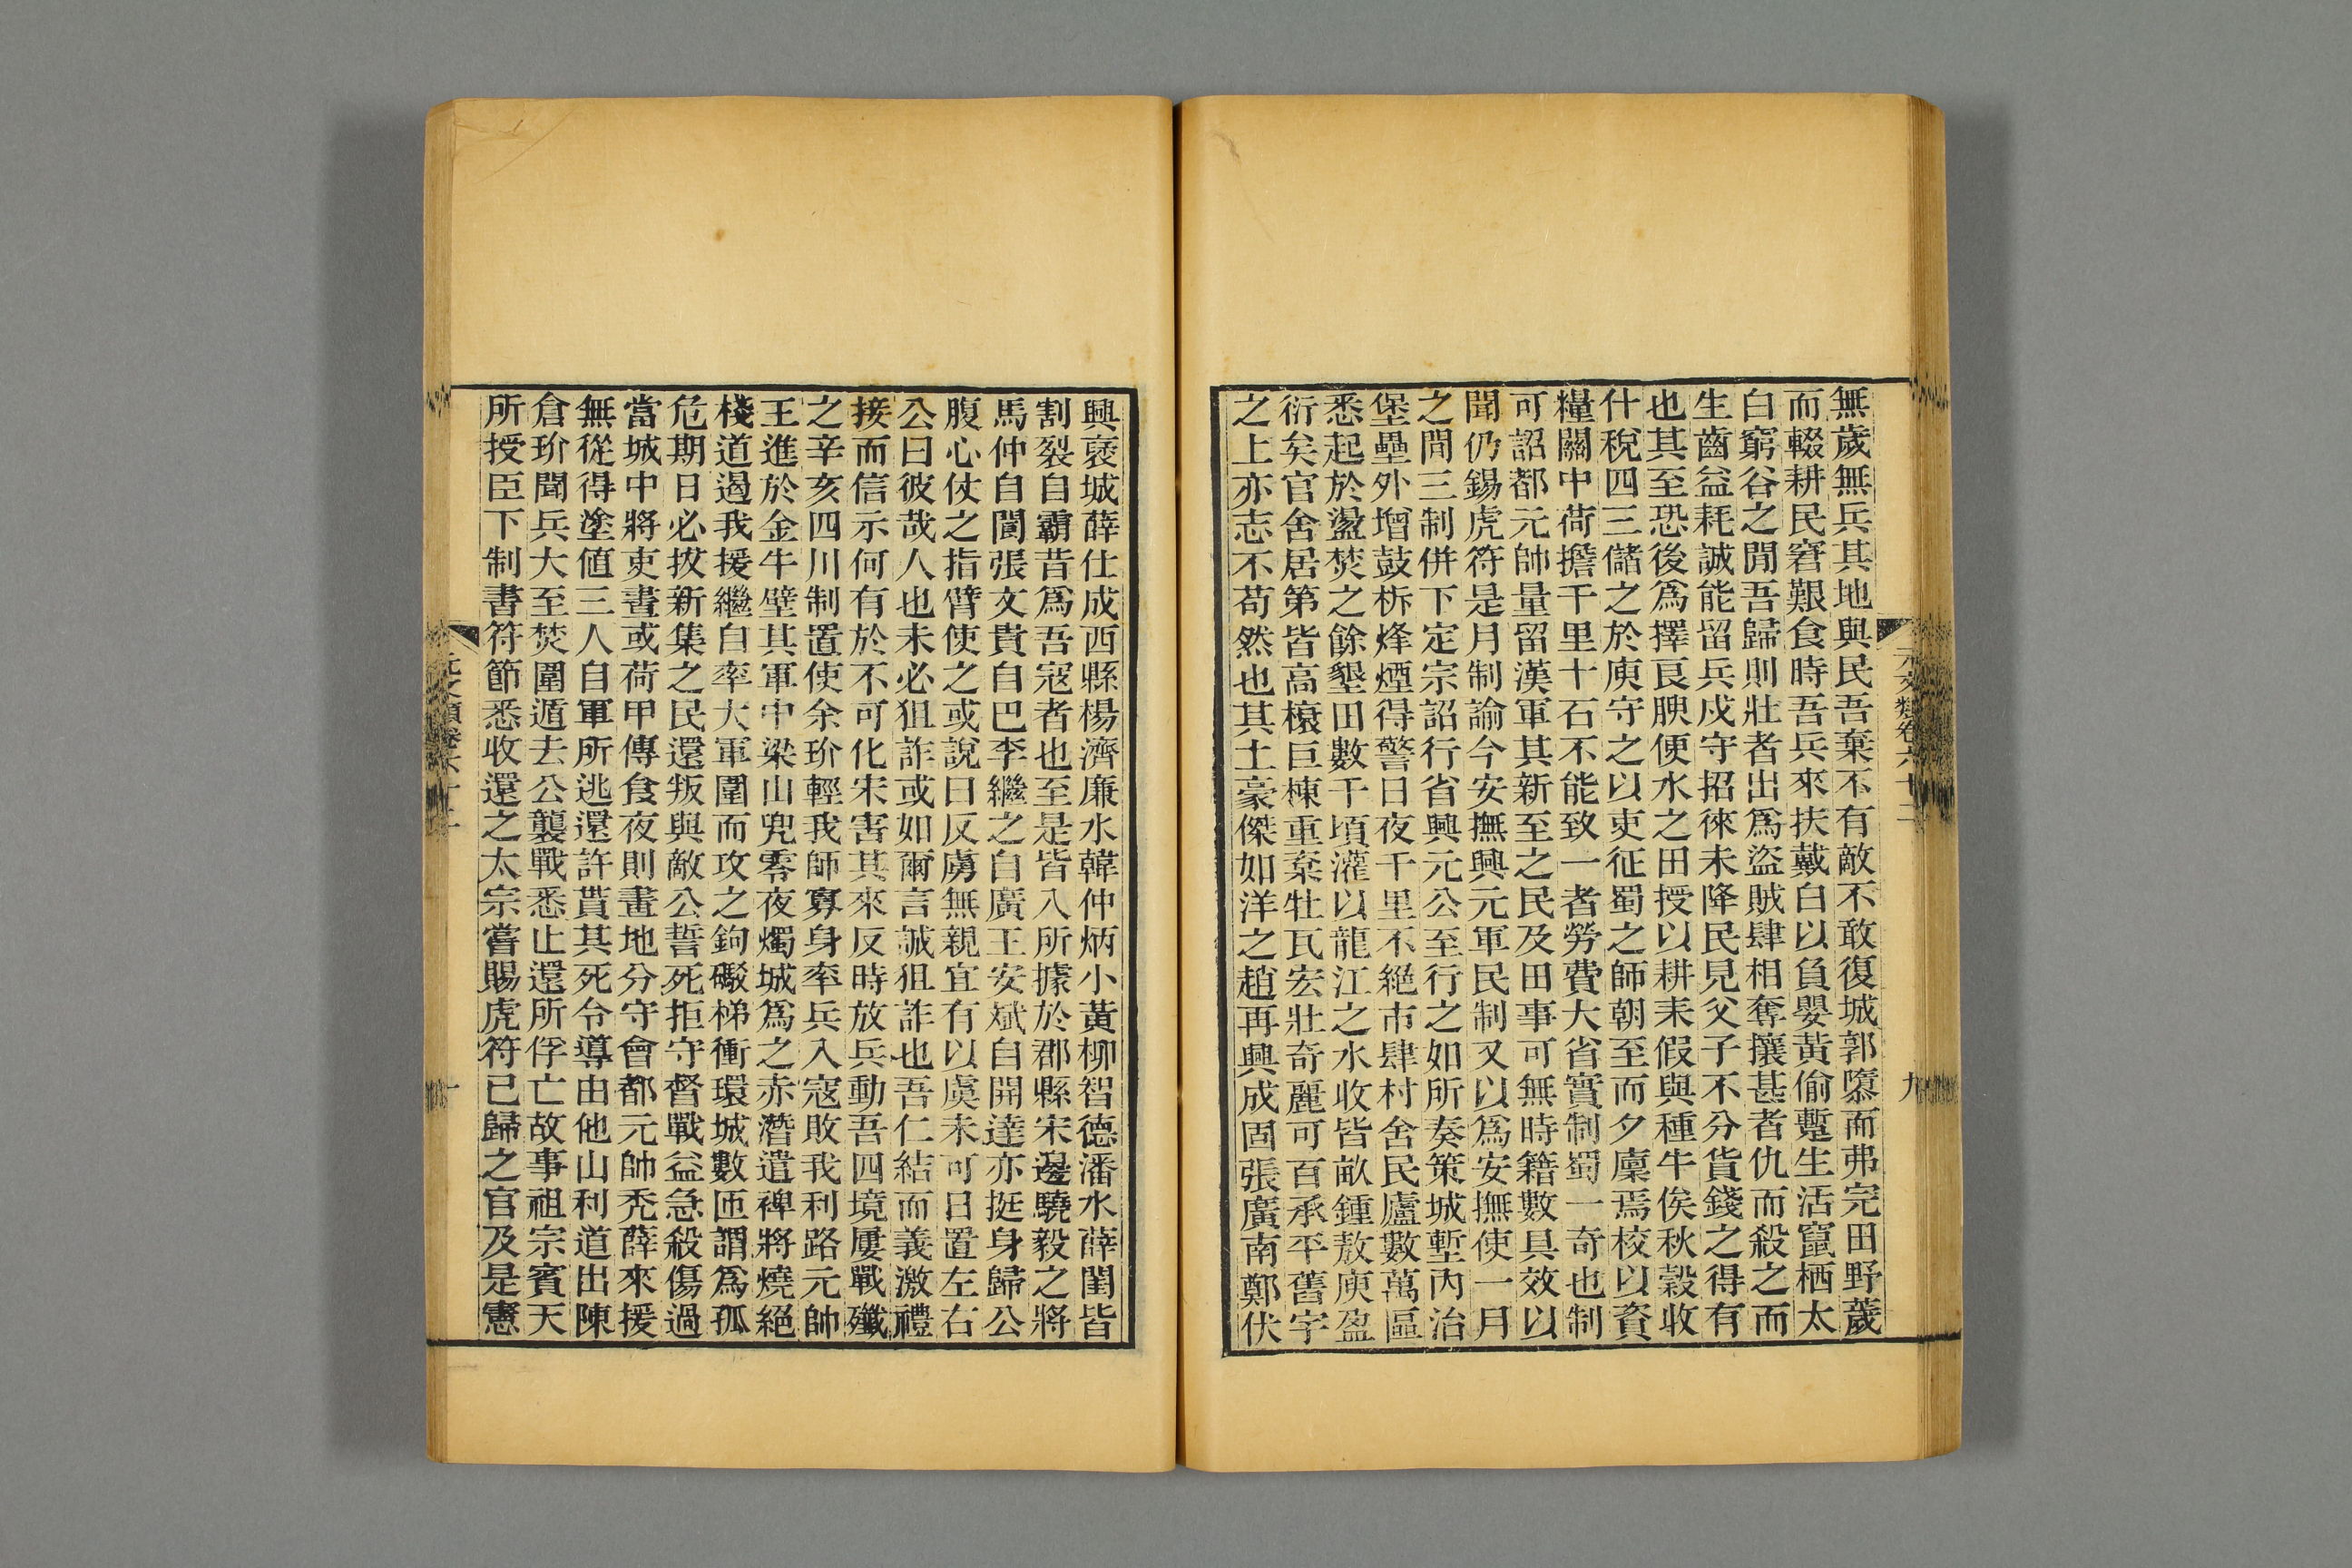 無歲無兵其地與民吾棄不有敵不敢復城郭隳而弗完田野薉
而輟耕民窘艱食時吾兵來扶戴白以負嬰黃偷蹔生活竄栖太
白窮谷之閒吾歸則壯者出爲盜賊肆相奪攘甚者仇而殺之而
生齒益耗誠能留兵戍守招徠未降民見父子不分貨錢之得有
也其至恐後爲擇良腴便水之田授以耕耒假與種牛俟秋穀收
什稅四三儲之於庾守之以吏征蜀之師朝至而夕廩焉校以資
糧關中荷擔千里十石不能致一者勞費大省實制蜀一奇也制
可詔都元帥量留漢軍其新至之民及田事可無時籍數具效以
聞仍錫虎符是月制諭今安撫興元軍民制又以爲安撫使一月
之閒三制併下定宗詔行省興元公至行之如所奏策城塹內治
堡壘外增鼓柝烽煙得警日夜千里不絕市肆村舍民廬數萬區
悉起於盪焚之餘墾田數千頃灌以龍江之水收皆畝鍾敖庾盈
衍矣官舍居第皆高榱巨棟重棻牡瓦宏壯奇麗可百承平舊字
之上亦志不苟然也其土豪傑如洋之趙再興成固張廣南鄭伏
元文類卷六十二
九
興褒城薛仕成西縣楊濟廉水韓仲炳小黃柳智德潘水薛閏皆
割裂自霸昔爲吾寇者也至是皆入所據於郡縣宋邊驍毅之將
馬仲自閬張文貴自巴李繼之自廣王安斌自開達亦挺身歸公
腹心仗之指臂使之或說曰反虜無親宜有以虞未可日置左右
公曰彼哉人也未必狙詐或如爾言誠狙詐也吾仁結而義激禮
接而信示何有於不可化宋害其來反時放兵動吾四境屢戰殲
之辛亥四川制置使余玠輕我師寡身率兵入寇敗我利路元帥
王進於金牛壁其軍中梁山兜零夜燭城爲之赤潛遣裨將燒絕
棧道遏我援繼自率大軍圍而攻之鉤礮梯衝環城數匝謂爲孤
危期日必拔新集之民還叛與敵公誓死拒守督戰益急殺傷過
當城中將吏晝或荷甲傳食夜則畫地分守會都元帥禿薛來援
無從得塗值三人自軍所逃還許貰其死令導由他山利道出陳
倉玠聞兵大至焚圍遁去公襲戰悉止還所俘亡故事祖宗賓天
所授臣下制書符節悉收還之太宗嘗賜虎符已歸之官及是憲